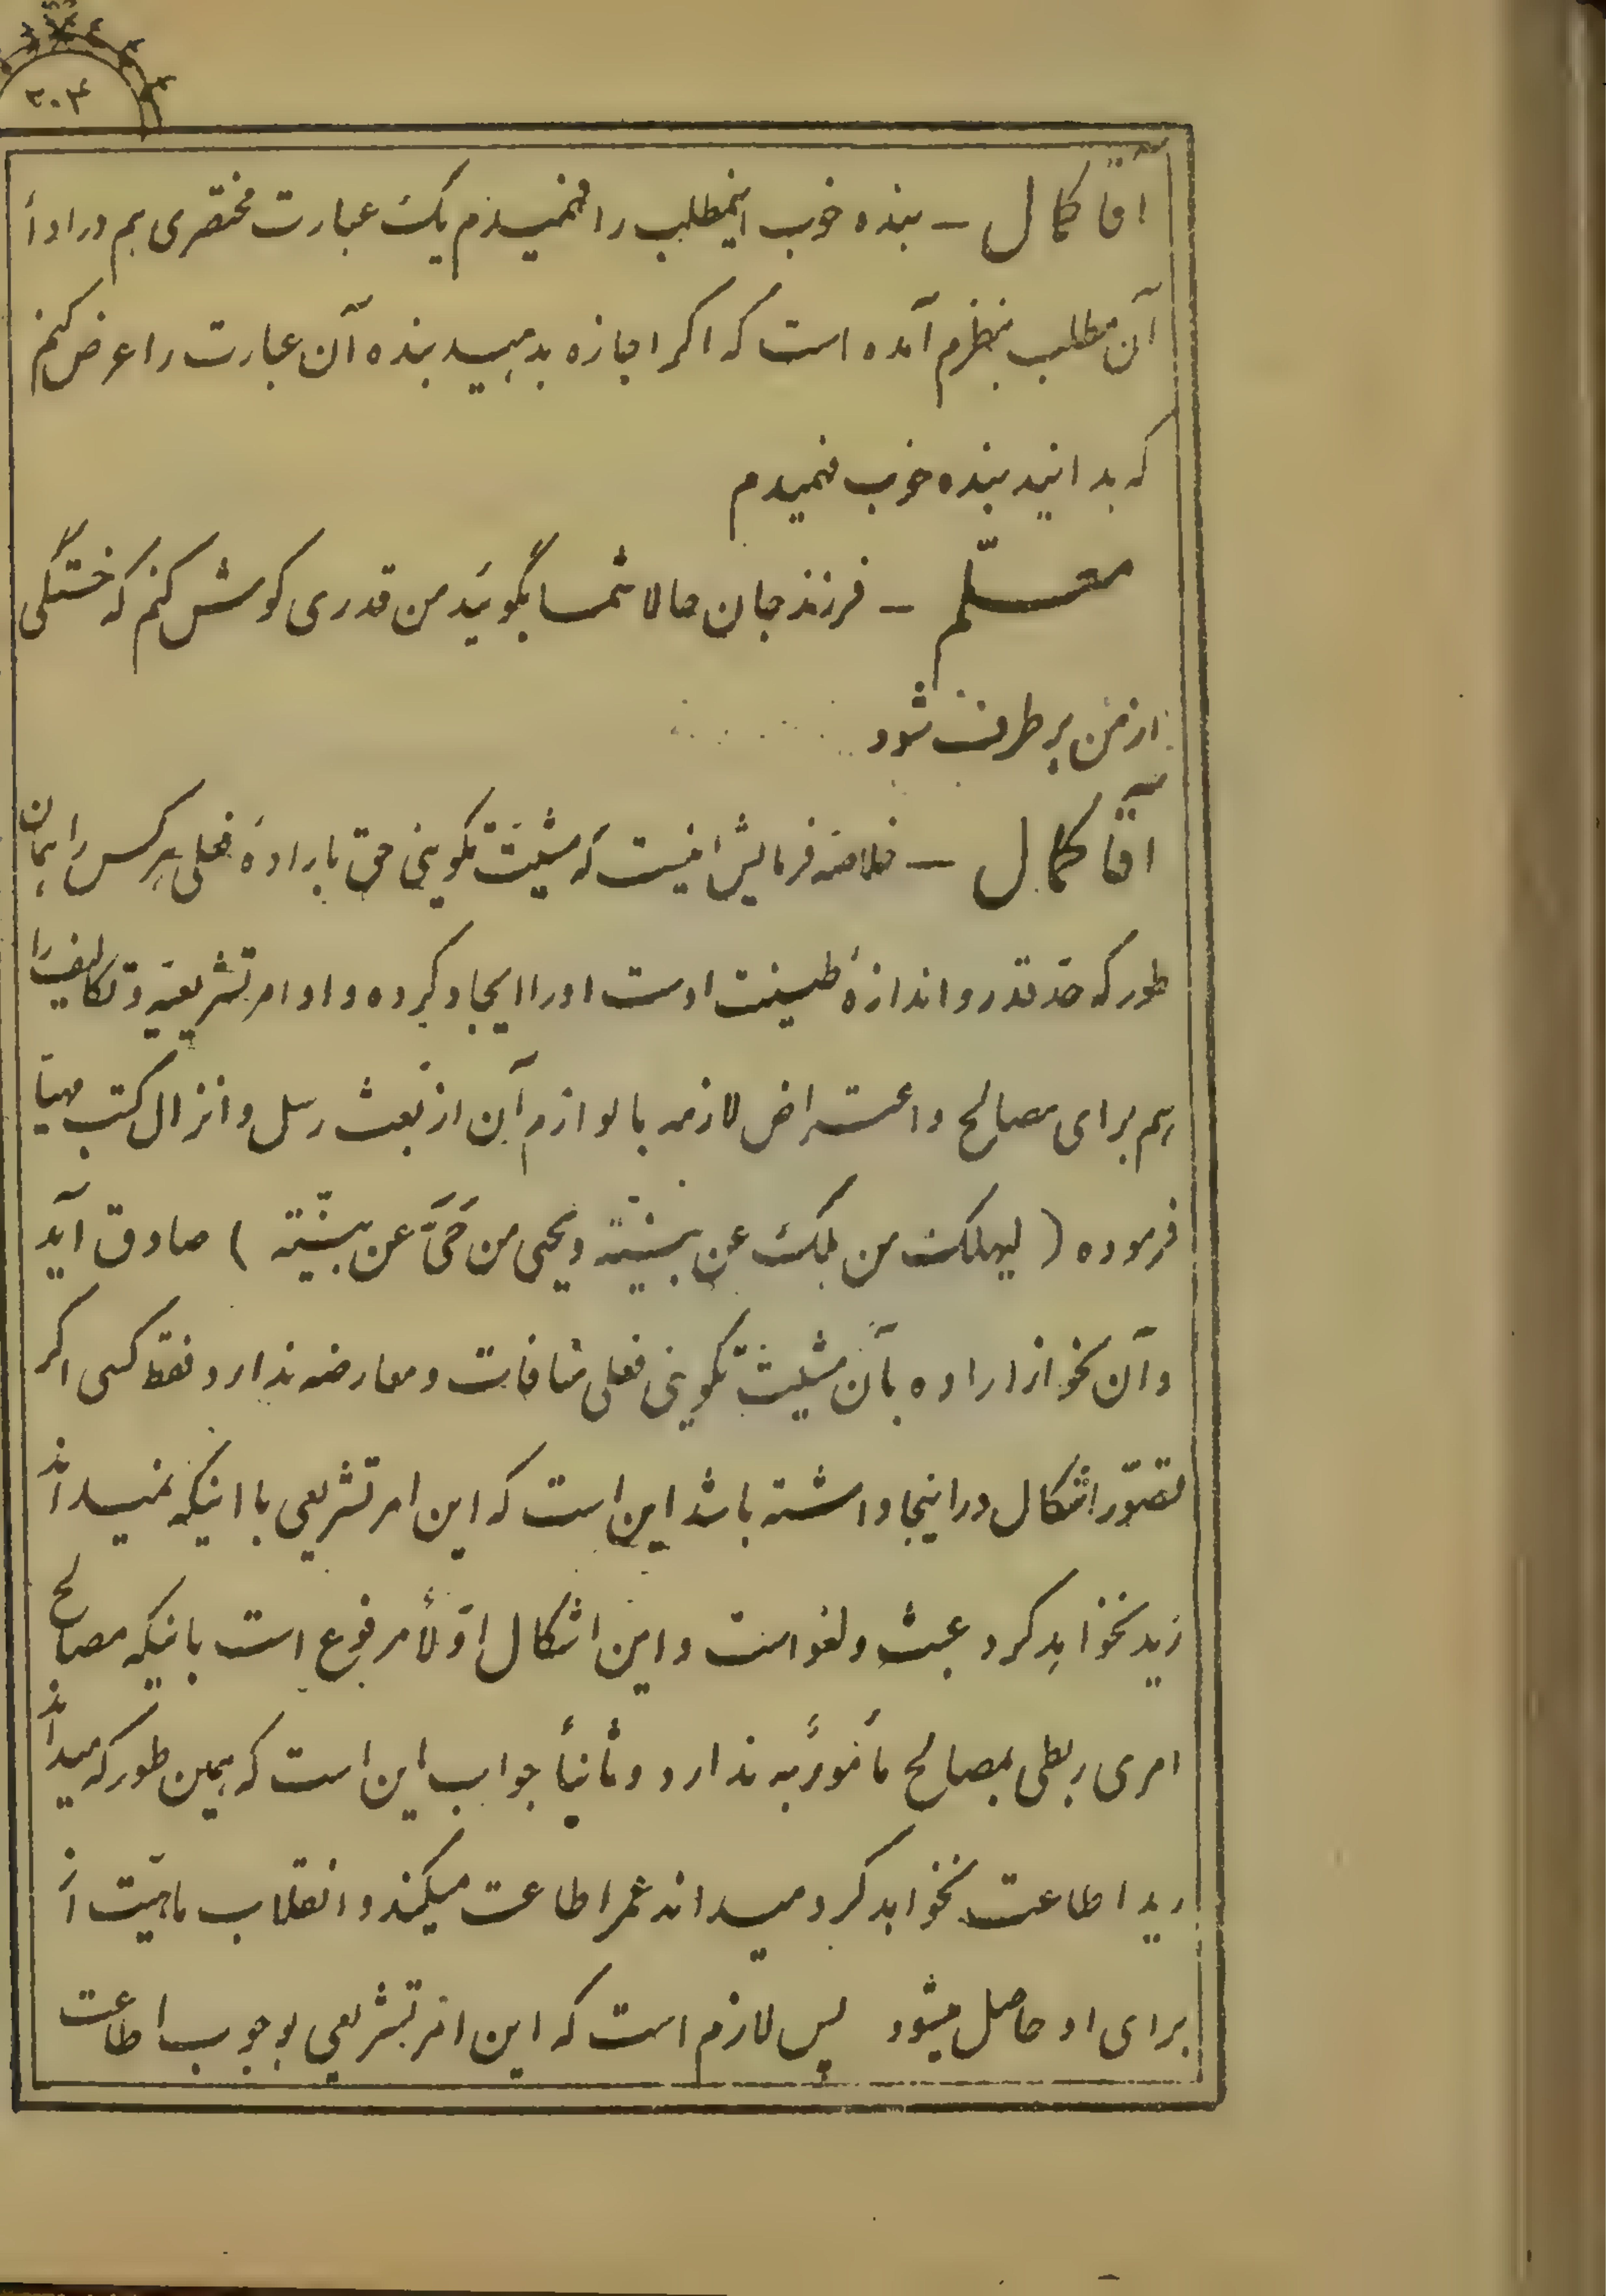 ۳۰۴
آقا کمال – بنده خوب اینمطلب را فهمیدم یک عبارت مختصری هم در ادأ
آن مطلب بنظرم آمده است که اگر اجازه بدهید بنده آن عبارت را عرض کنم
که بدانید بنده خوب فهمیدم
معلّم – فرزند جان حالا شما بگوئید من قدری گوش کنم که خستگی
از من برطرف شود
آقا کمال – خلاصه فرمایش اینست که مشیّت تکوینی حق بارادۀ فعلی هر کس را بهمان
طور که حدّ قدر و اندازۀ طینت اوست او را ایجاد کرده و اوامر تشریعیّه و تکالیف را
هم برای مصالح و اغتراض لازمه با لوازم آن از بعث رسل و انزال کتب مهیّا
فرموده (لیهلک من هلک عن بیّنة و یحیی من حیَّ عن بیّنة) صادق آید
و آن نحو از اراده بآن مشیّت تکوینی فعلی منافات و معارضه ندارد فقط کسی اگر
تصوّر اشکال در اینجا داشته باشد این است که این امر تشریعی با اینکه میداند
زید نخواهد کرد عبث و لغو است و این اشکال اوّلاً مرفوع است باینکه مصالح
امری ربطی بمصالح مأمورٌ به ندارد و ثانیاً جواب این است که همین طور که میداند
زید اطاعت نخواهد کرد میداند عمر اطاعت میکند و انقلاب ماهیّت از
برای او حاصل میشود پس لازم است که این امر تشریعی بوجوب اطاعت